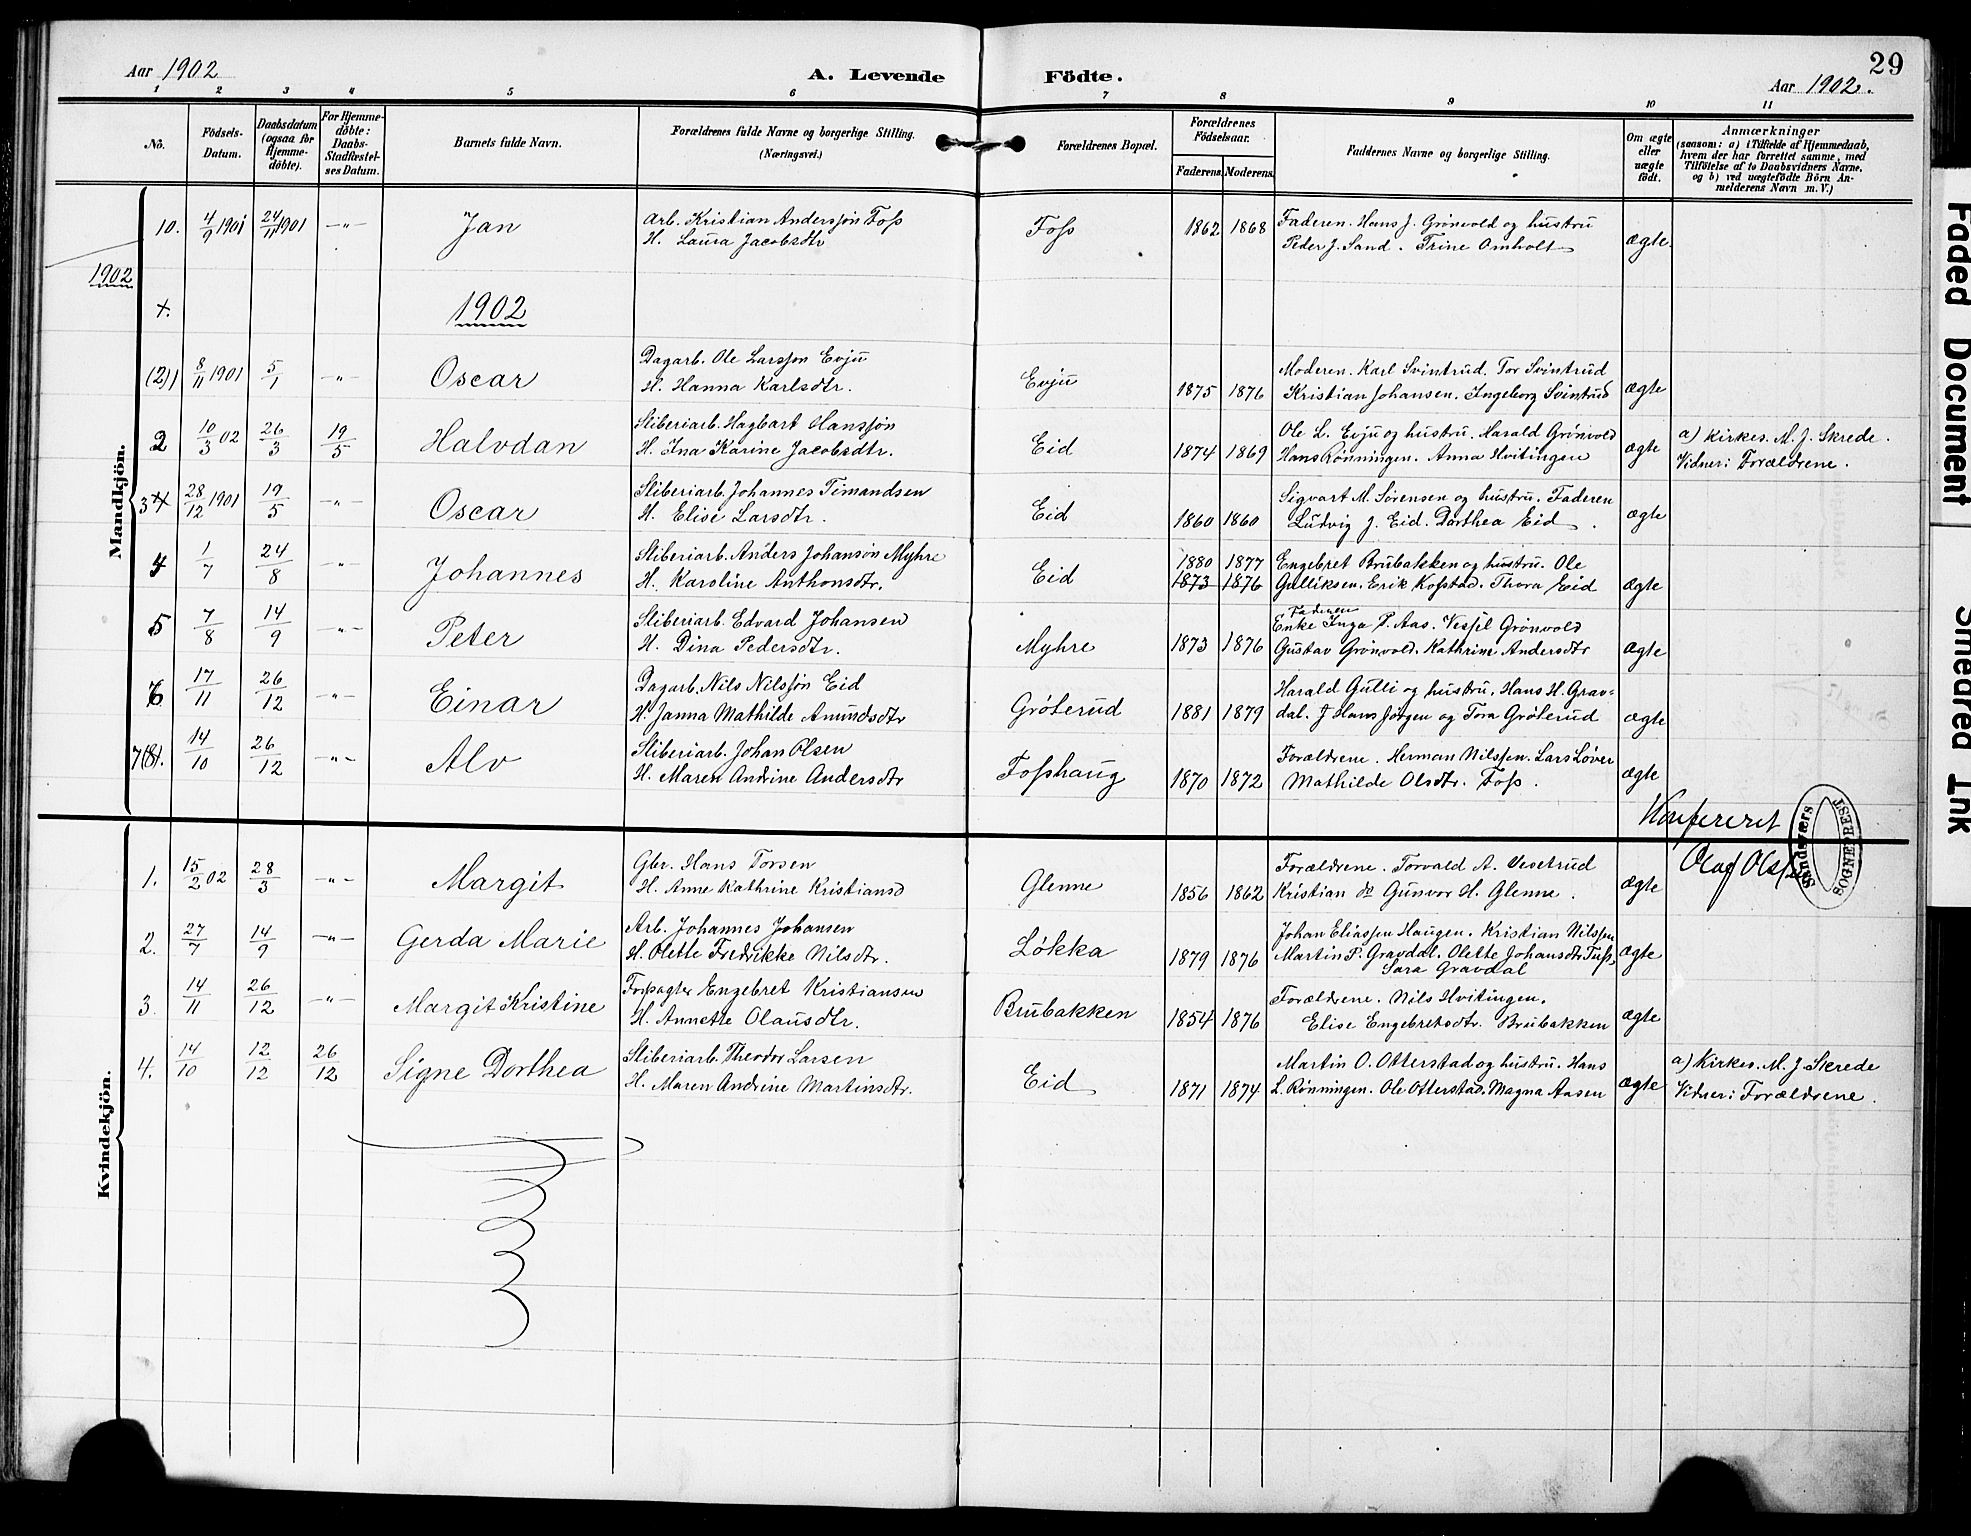 29
Aar 1902
A. Levende Födte.
Aar 1902.
1 2 3 4 5 6 7 8 9 10 11
No.
Födsels-
Datum.
Daabsdatum
(ogsaa for
Hjemme-
döbte).
For Hjemme-
döbte:
Daabs-
Stadfæstel-
ses Datum.
Barnets fulde Navn.
Forældrenes fulde Navne og borgerlige Stilling.
(Næringsvei.)
Forældrenes Bopæl.
Forældrenes
Födselsaar.
Faderens Moderens
Faddernes Navne og borgerlige Stilling.
Om ægte
eller
uægte
födt.
Anmærkninger
(saasom: a) i Tilfælde af Hjemmedaab,
hvem der har forrettet samme, med
Tilföielse af to Daabsvidners Navne,
og b) ved uægtefödte Börn An-
melderens Navn m. V.)
Mandkjön.
10. 4/9 1901 24/11 1901 -„- Jan Arb. Kristian Andersson Foss Foss 1862 1868 Faderen. Hans J. Grönvold og hustru ægte.
H. Laura Jacobsdtr Peder J. Sand. Trine Omholt
1902
1902
(2)1 8/11 1901 5/1 -„- Oscar Dagarb. Ole Larsson Evju Evju 1875 1876 Moderen. Karl Svintrud. Tor Svintrud ægte
H. Hanna Karlsdtr. Kristian Johansen. Ingeborg Svintrud
2 10/3 02 26/3 19/5 Halvdan Sliberiarb. Hagbart Hanssön Eid 1874 1869 Ole L. Evju og hustru. Harald Grönvold ægte a) Kirkes. M. J. Skrede.
H. Ina Karine Jacobsdtr. Hans Rönningen. Anna Hvitingen Vidner: Forældrene.
3 28/12 1901 19/5 -„- Oscar Sliberiarb. Johannes Timandsen Eid 1860 1860 Sigvart M. Sörensen og hustru. Faderen ægte
H. Elise Larsdtr. Ludvig J. Eid. Dorthea Eid.
4 1/7 24/8 -„- Johannes Sliberiarb. Anders Johansön Myhre Eid 1880 1877 Engebret Brubakken og hustru. Ole ægte
H. Karoline Anthonsdtr. 1873 1876 Gulliksen. Erik Kosstad. Thora Eid
5 7/8 14/9 -„- Peter Sliberiarb. Edvard Johansen Myhre 1873 1876 Faderen
Enke Inga P. Aas. Vessil Grönvold ægte
H. Dina Pedersdtr. Gustav Grönvold. Kathrine Andersdtr
6 17/11 26/12 -„- Einar Dagarb. Nils Nilssön Eid Gröterud 1881 1879 Harald Gulli og hustru. Hans H. Grav- ægte
H. Janna Mathilde Amundsdtr dal. J Hans Jörgen og Tora Gröterud
7(8). 14/10 26/12 -„- Alv Sliberiarb. Johan Olsen Fosshaug 1870 1872 Forældrene. Herman Nilssen. Lars Löver ægte
H. Maren Andrine Andersdtr Mathilde Olsdtr. Foss.
Konfereret
Olaf Olss
Sandsværs
SOGNEPREST
Kvindekjön.
1. 15/2 02 28/3 -„- Margit Gbr. Hans Torsen Glenne 1856 1862 Forældrene. Torvald A. Vesetrud ægte
H. Anne Kathrine Kristiansd Kristian & Gunvor H. Glenne.
2. 27/7 14/9 -„- Gerda Marie Arb. Johannes Johansen Lökka 1879 1876 Johan Eliassen Haugen. Kristian Nilssen ægte
H. Olette Fredrikke Nilsdtr. Martin P. Gravdal. Olette Johansdtr Fuss,
Sara Gravdal
3. 14/11 26/12 -„- Margit Kristine Forpagter Engebret Kristiansen Brubakken 1854 1876 Forældrene. Nils Hvitingen. ægte
H. Annette Olausdtr. Elise Engebretsdtr. Brubakken
4. 14/10 12/12 26/12 Signe Dorthea Sliberiarb. Theodor Larsen Eid 1871 1874 Martin O. Otterstad og hustru. Hans ægte a) Kirkes. M. J. Skrede
H. Maren Andrine Martinsdtr. L. Rönningen. Ole Otterstad. Magna Aasen Vidner: Forældrene.
Faded Document
Smeared Ink